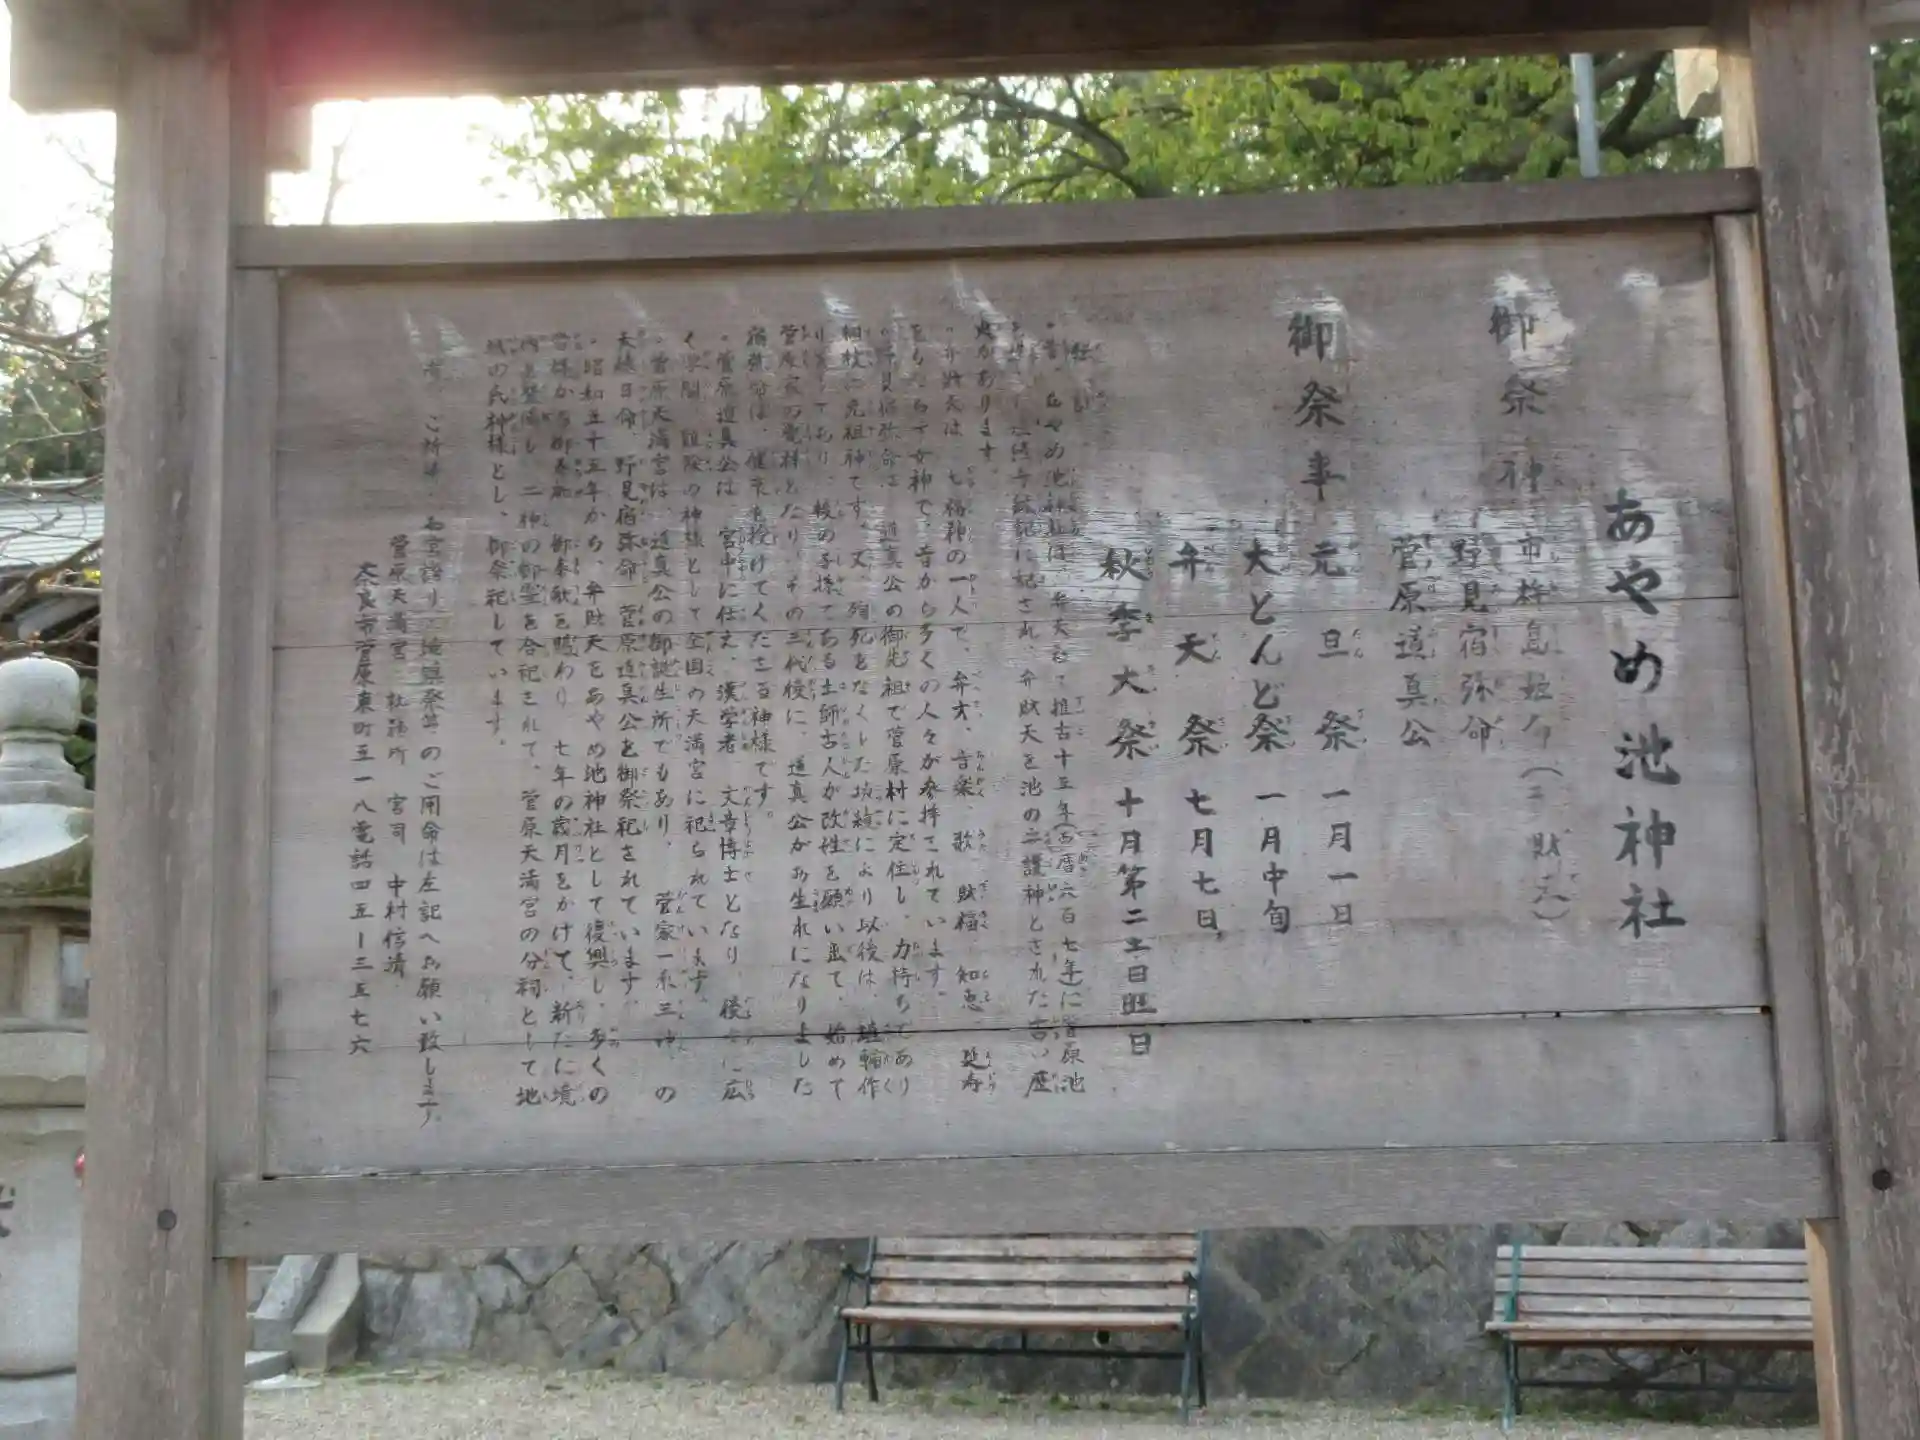 あやめ池神社
御祭神 市杵島姫命(弁財天)
野見宿弥命
菅原道真公
御祭事 元旦祭 一月一日
大とんど祭 一月中旬
弁天祭 七月七日
秋季大祭 十月第二土日曜日
あやめ池神社は、弁天社で推古十五年(西暦六百七年)に菅原池
記に記され、弁財天を池の守護神とされた古い歴
史があります。
・弁財天は、七福神の一人で、弁才、音楽、歌、財福、知恵、延寿
をもたらす女神で、昔から多くの人々が参拝されています。
・野見宿弥命は、道真公の御先祖で菅原村に定住し、力持ちであり
相撲に元祖神です。又、殉死をなくした功績により以後は、埴輪作
りをしており、後の子孫である土師古人が改姓を願い出て、始めて
菅原家の竜材となり、その三代後に、道真公がお生れになりました
宿弥命は、健康を授けてくださる神様です。
・菅原道真公は、宮中に仕え、漢学者、文章博士となり、後々に広
く学問、誠の神様として全国の天満宮に祀られています。
・菅原天満宮は、道真公の御誕生所でもあり、菅家一系三神、の
天穂日命、野見宿弥命、菅原道真公を御祭祀されています。
・昭和五十五年から、弁財天をあやめ池神社として復興し、多くの
皆様から御参拝、御奉献を賜わり、七年の歳月をかけて、新たに境
内を整備し、二神の御霊を合祀されて、菅原天満宮の分祠として地
域の氏神様とし、御祭祀しています。
尚、ご祈祷、お宮詣り、地鎮祭等のご用命は左記へお願い致します。
菅原天満宮 社務所 宮司 中村信清
奈良市菅原東町五一八電話四五ー三五七六